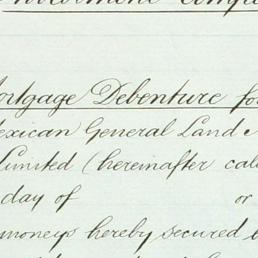 Mortgage Debenture for
Mexican General Land
Limited (hereinafter call
day of or
moneys hereby secured